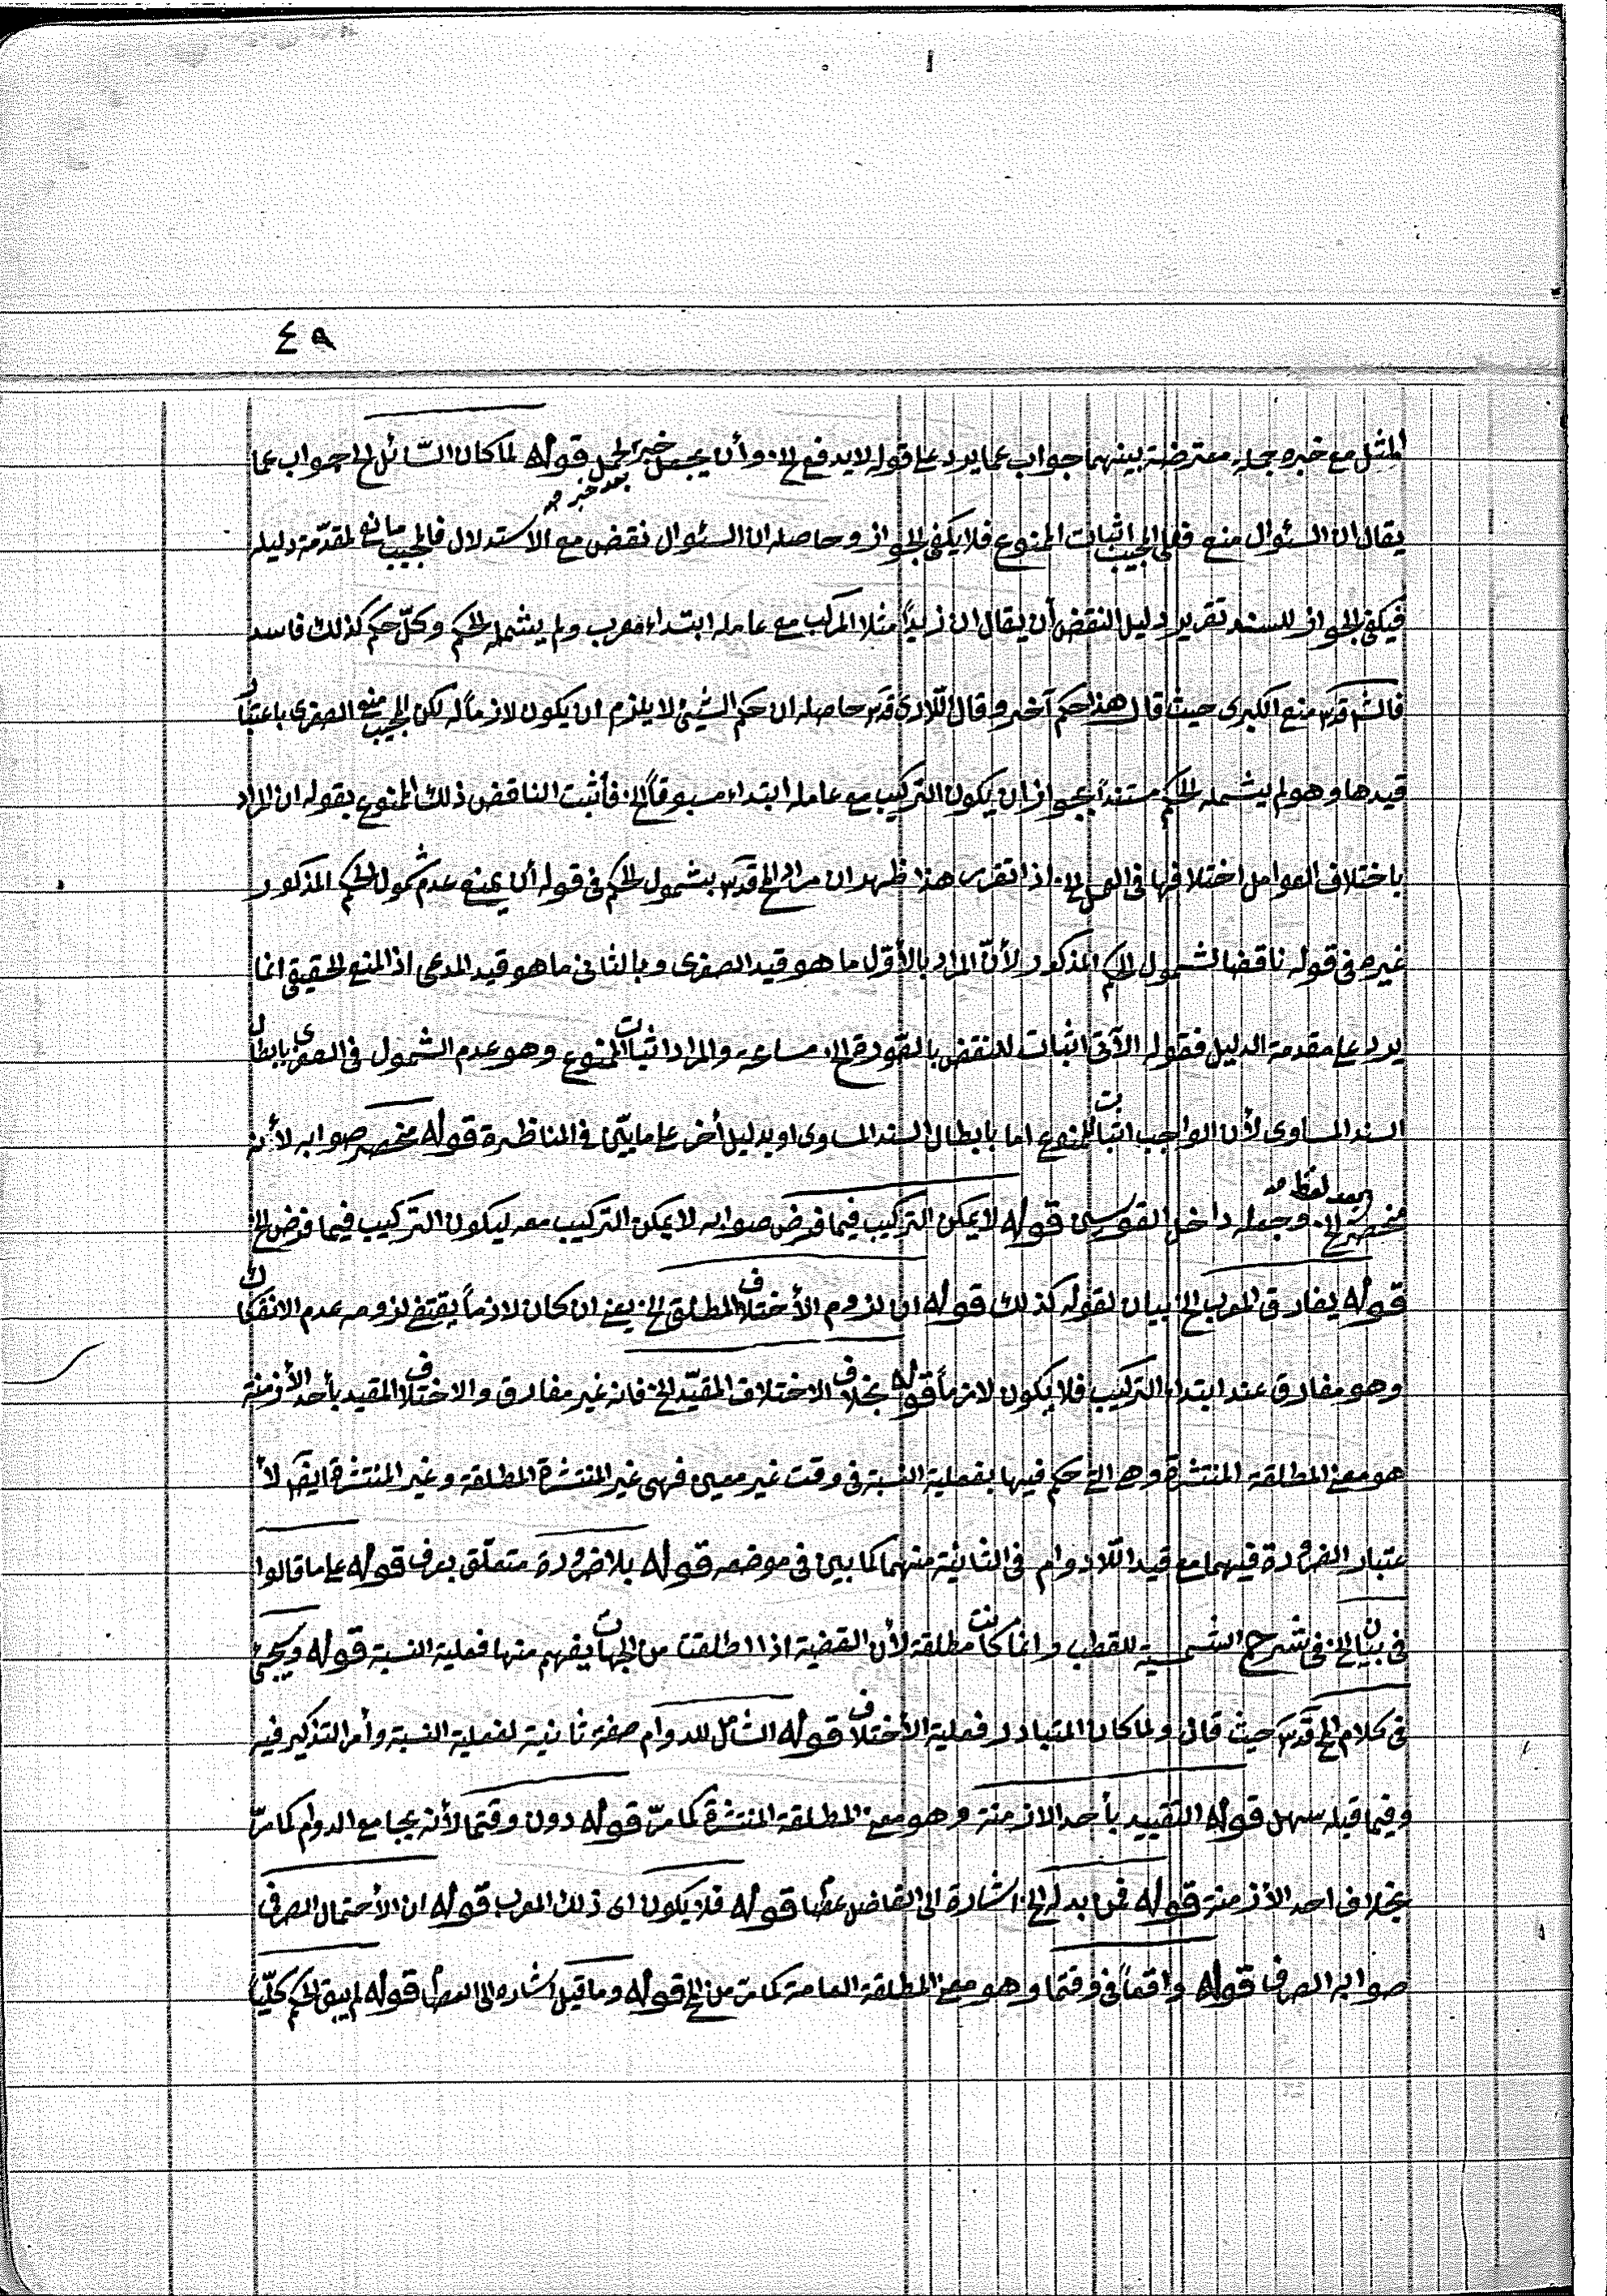 ٤٩
المثل مع خبره جملة معترضة بينهما جواب عما يرد على قوله لا يدفع الخ وأن يجعل خبر الجمل قوله لما كان السّائل الخ جواب عما
بعد خبر صح
يقال ان السئوال منع فعلى المجيب اثبات الممنوع فلا يكفى الجواز وحاصله ان السئوال نقض مع الاستدلال فالمجيب مانع لمقدّمة دليله
فيكفى الجواز للسند تقرير دليل النقض أن يقال ان زيداً مثلا المركب مع عامله ابتداء معرب ولم يشمله الحكم وكلّ حكم كذلك فاسد
فالش قدّس منع الكبرى حيث قال هذا حكم آخر وقال اللّارى قدّس حاصله ان حكم الشيئ لا يلزم ان يكون لازماً له لكن المجيب منع الصغرى باعتبار
قيدها وهو لم يشمله الحكم مستنداً بجواز ان يكون التركيب مع عامله ابتداء مسبوقاً الخ فأثبت الناقض ذلك الممنوع بقوله ان المراد
باختلاف العوامل اختلافها فى العمل الخ اذا تقرر هذا ظهر ان مراد المح قدّس بشمول الحكم فى قوله أن يمنع عدم شمول الحكم المذكور
غيره فى قوله ناقضا لشمول الحكم المذكور لأنّ المراد بالأوّل ما هو قيد الصغرى وبالثانى ما هو قيد المدعى اذ المنع الحقيقى انما
يرد على مقدمة الدليل فقوله الآتى اثبات للنقض بالصّورة الخ مسامحة والمراد اثبات الممنوع وهو عدم الشمول فى الصغرى بابطال
السند المساوى لأن الواجب اثبات الممنوع اما بابطال السند المساوى او بدليل أخر على ما بيّن فى المناظرة قوله منحصر صوابه لأنه
بعد لفظ صح
منحصر الخ وجعله داخل القوسين قوله لا يمكن التركيب فيما فرض صوابه لا يمكن التركيب معه ليكون التركيب فيما فرض الخ
قوله يفارق المعرب الخ بيان لقوله كذلك قوله ان لزوم الأختلاف المطلق الخ يعنى ان كان لازماً يقتضى لزومه عدم الانفكاك
وهو مفارق عند ابتداء التركيب فلا يكون لازماً قوله بخلاف الاختلاف المقيّد الخ فانه غير مفارق والاختلاف المقيد بأحد الأزمنة
هو معنى المطلقة المنتشرة وهى التى حكم فيها بفعلية النسبة فى وقت غير معين فهى غير المنتشرة المطلقة وغير المنتشرة ايضا لأ
عتبار الضرورة فيهما مع قيد اللّادوام فى الثانية منهما كما بين فى موضعه قوله بلا ضرورة متعلّق بعرف قوله على ما قالوا
فى بيان الخ فى شرح الشمسية للقطب وانما كانت مطلقة لأن القضية اذا اطلقت من الجهات يفهم منها فعلية النسبة قوله ويجئ
فى كلام المح قدّس حيث قال ولما كان المتبادر فعلية الأختلاف قوله الشامل للدوام صفة ثانية لفعلية النسبة وأمر التذكير فيه
وفيما قبله سهل قوله التقييد بأحد الازمنة وهو معنى المطلقة المنتشرة كما مرّ قوله دون وقتما لأنه يجامع الدوام كما مرّ
بخلاف احد الأزمنة قوله فمن بدله الخ اشارة الى الفاضل عصام قوله فلا يكون اى ذلك المعرب قوله ان الأحتمال الصرفى
صوابه الصرف قوله واقعاً فى وقتما وهو معنى المطلقة العامة كما مرّ من المح قوله وما قيل اشاره الى العصام قوله لم يبق الحكم كليّاً